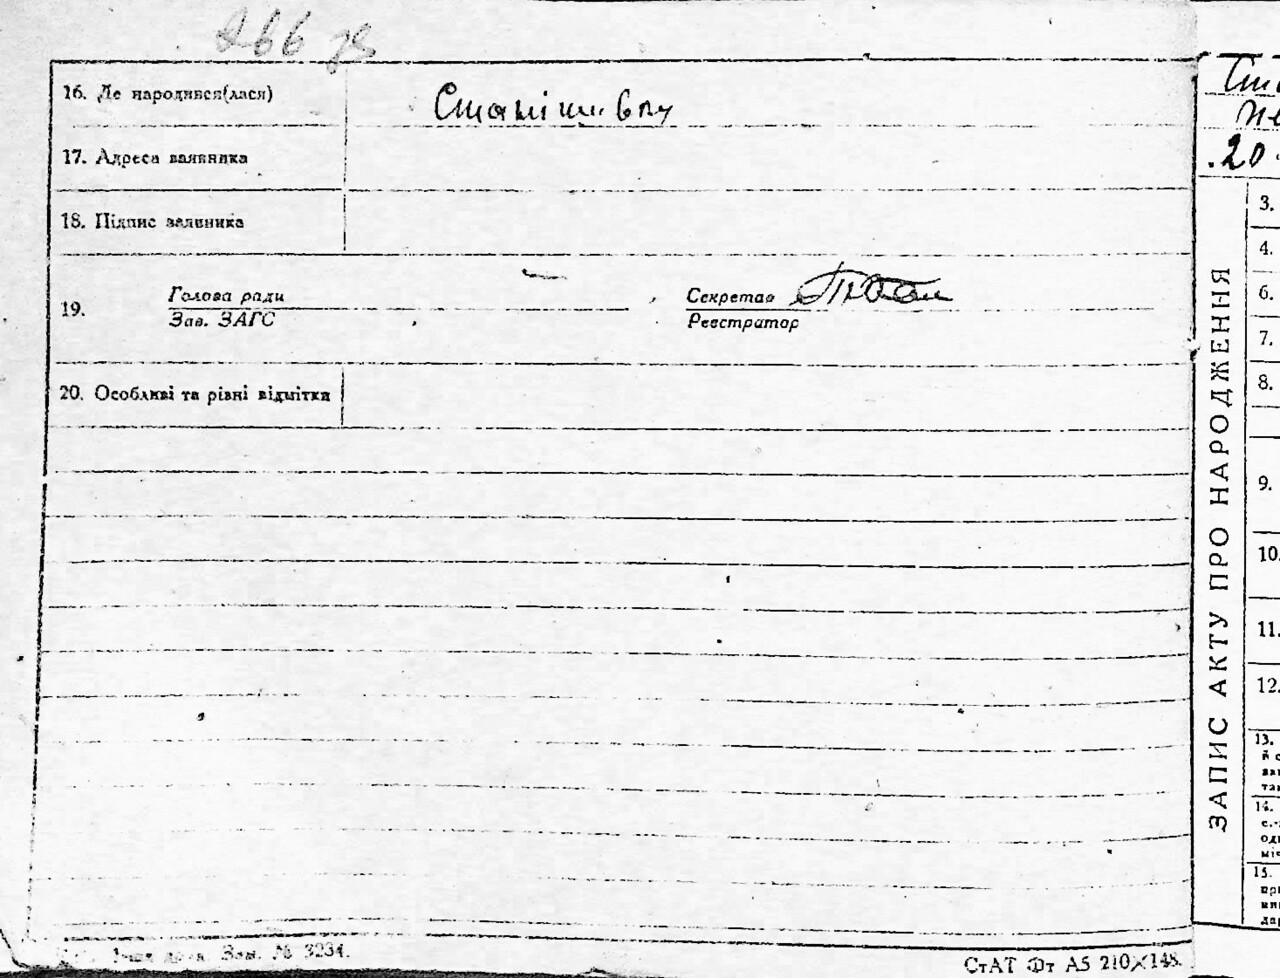 266 зв
16. Де народився(лася)
Станішивку
17. Адреса заявника
18. Підпис заявника
19.
Голова ради
Зав. ЗАГС
Секретар
Реєстратор
20. Особливі та різні відмітки
Зам. № 3234.
СтАТ Фт А5 210×148.
ЗАПИС АКТУ ПРО НАРОДЖЕННЯ
.20
3.
4.
6.
7.
8.
9.
10.
11.
12.
13.
14.
15.